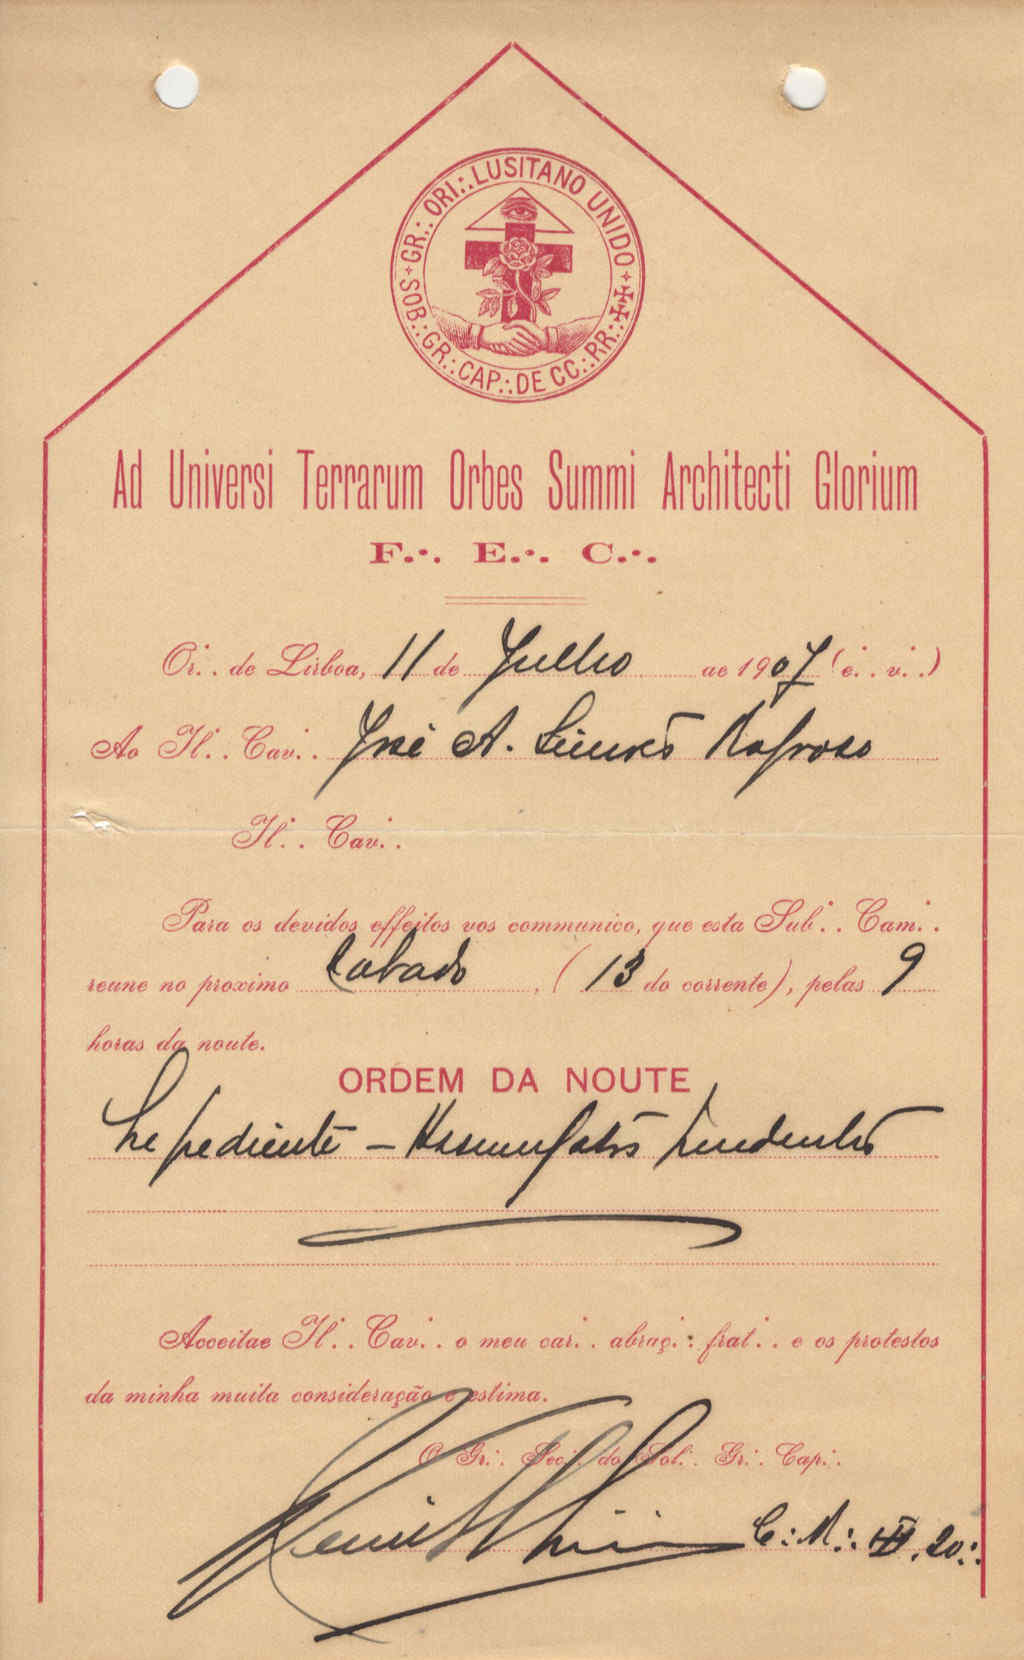 GR∴ ORI∴ LUSITANO UNIDO
SOB∴ GR∴ CAP∴ DE CC∴ RR∴
Ad Universi Terrarum Orbes Summi Architecti Glorium
F∴ E∴ C∴
Or∴ de Lisboa, 11 de Julho de 1907 (e∴ v∴)
Ao Il∴ Cav∴ José A. Simões Raposo
Il∴ Cav∴
Para os devidos effeitos vos communico, que esta Sub∴ Cam∴
reune no proximo Sabado, (13 do corrente), pelas 9
horas da noute.
ORDEM DA NOUTE
Expediente – Assumptos pendentes
Acceitae Il∴ Cav∴ o meu car∴ abraç∴ frat∴ e os protestos
da minha muita consideração e estima.
O Gr∴ Sec∴ do Sob∴ Gr∴ Cap∴
C∴ M∴ 20∴